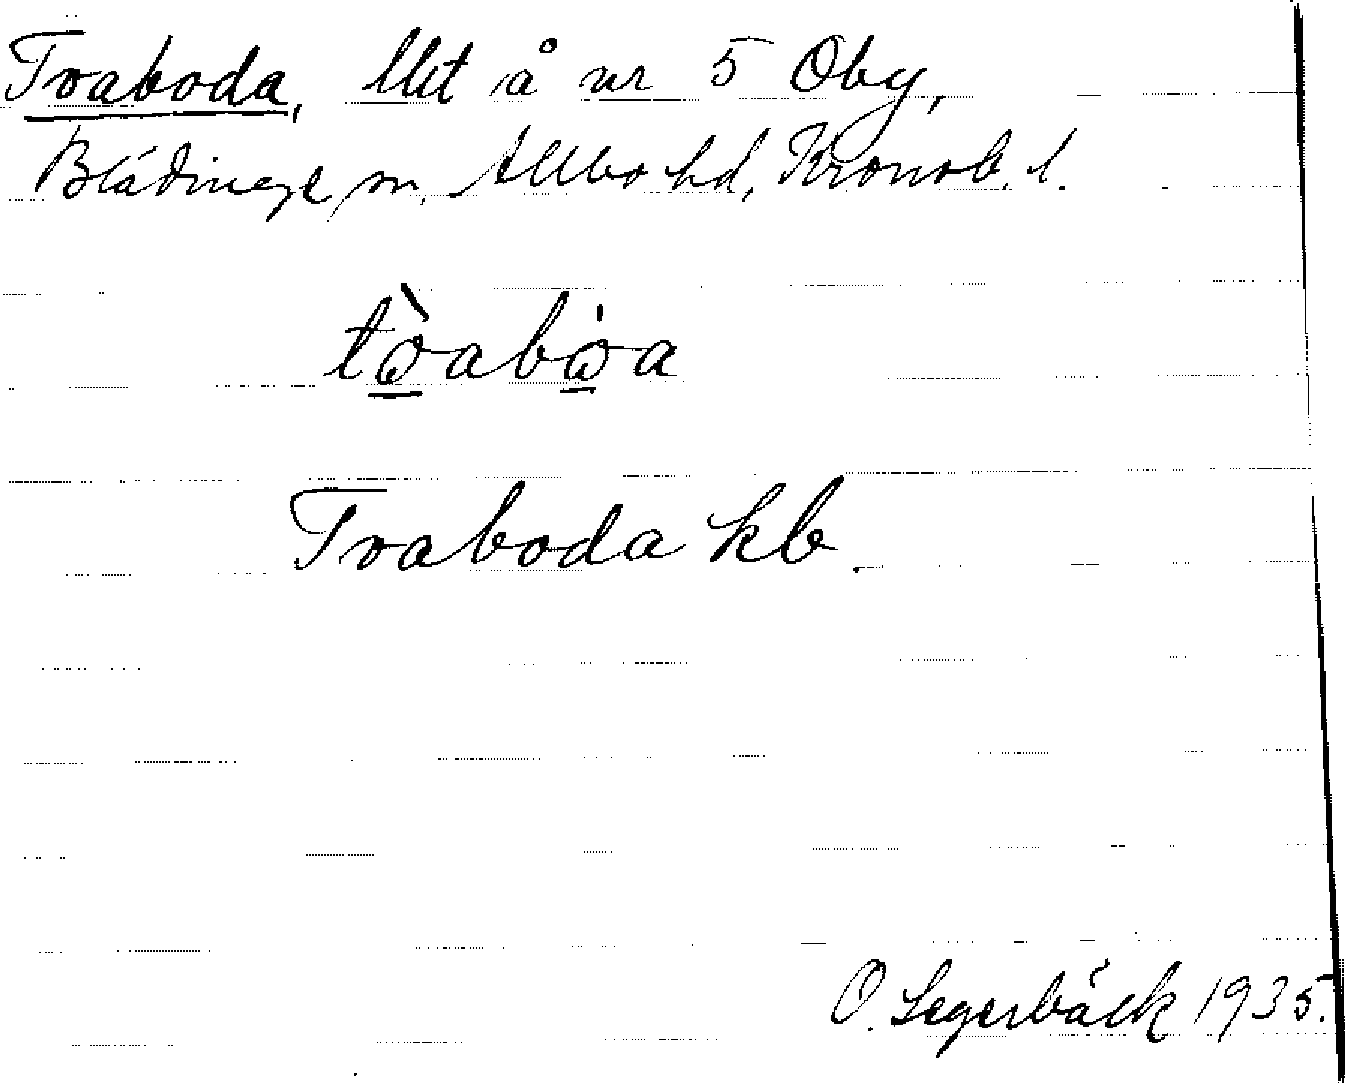 Tvaboda, lht å nr 5 Oby,
Blädinge sn, Allbo hd, Kronob. l.
tòabòa
Tvaboda kb.
O. Segerbäck 1935.